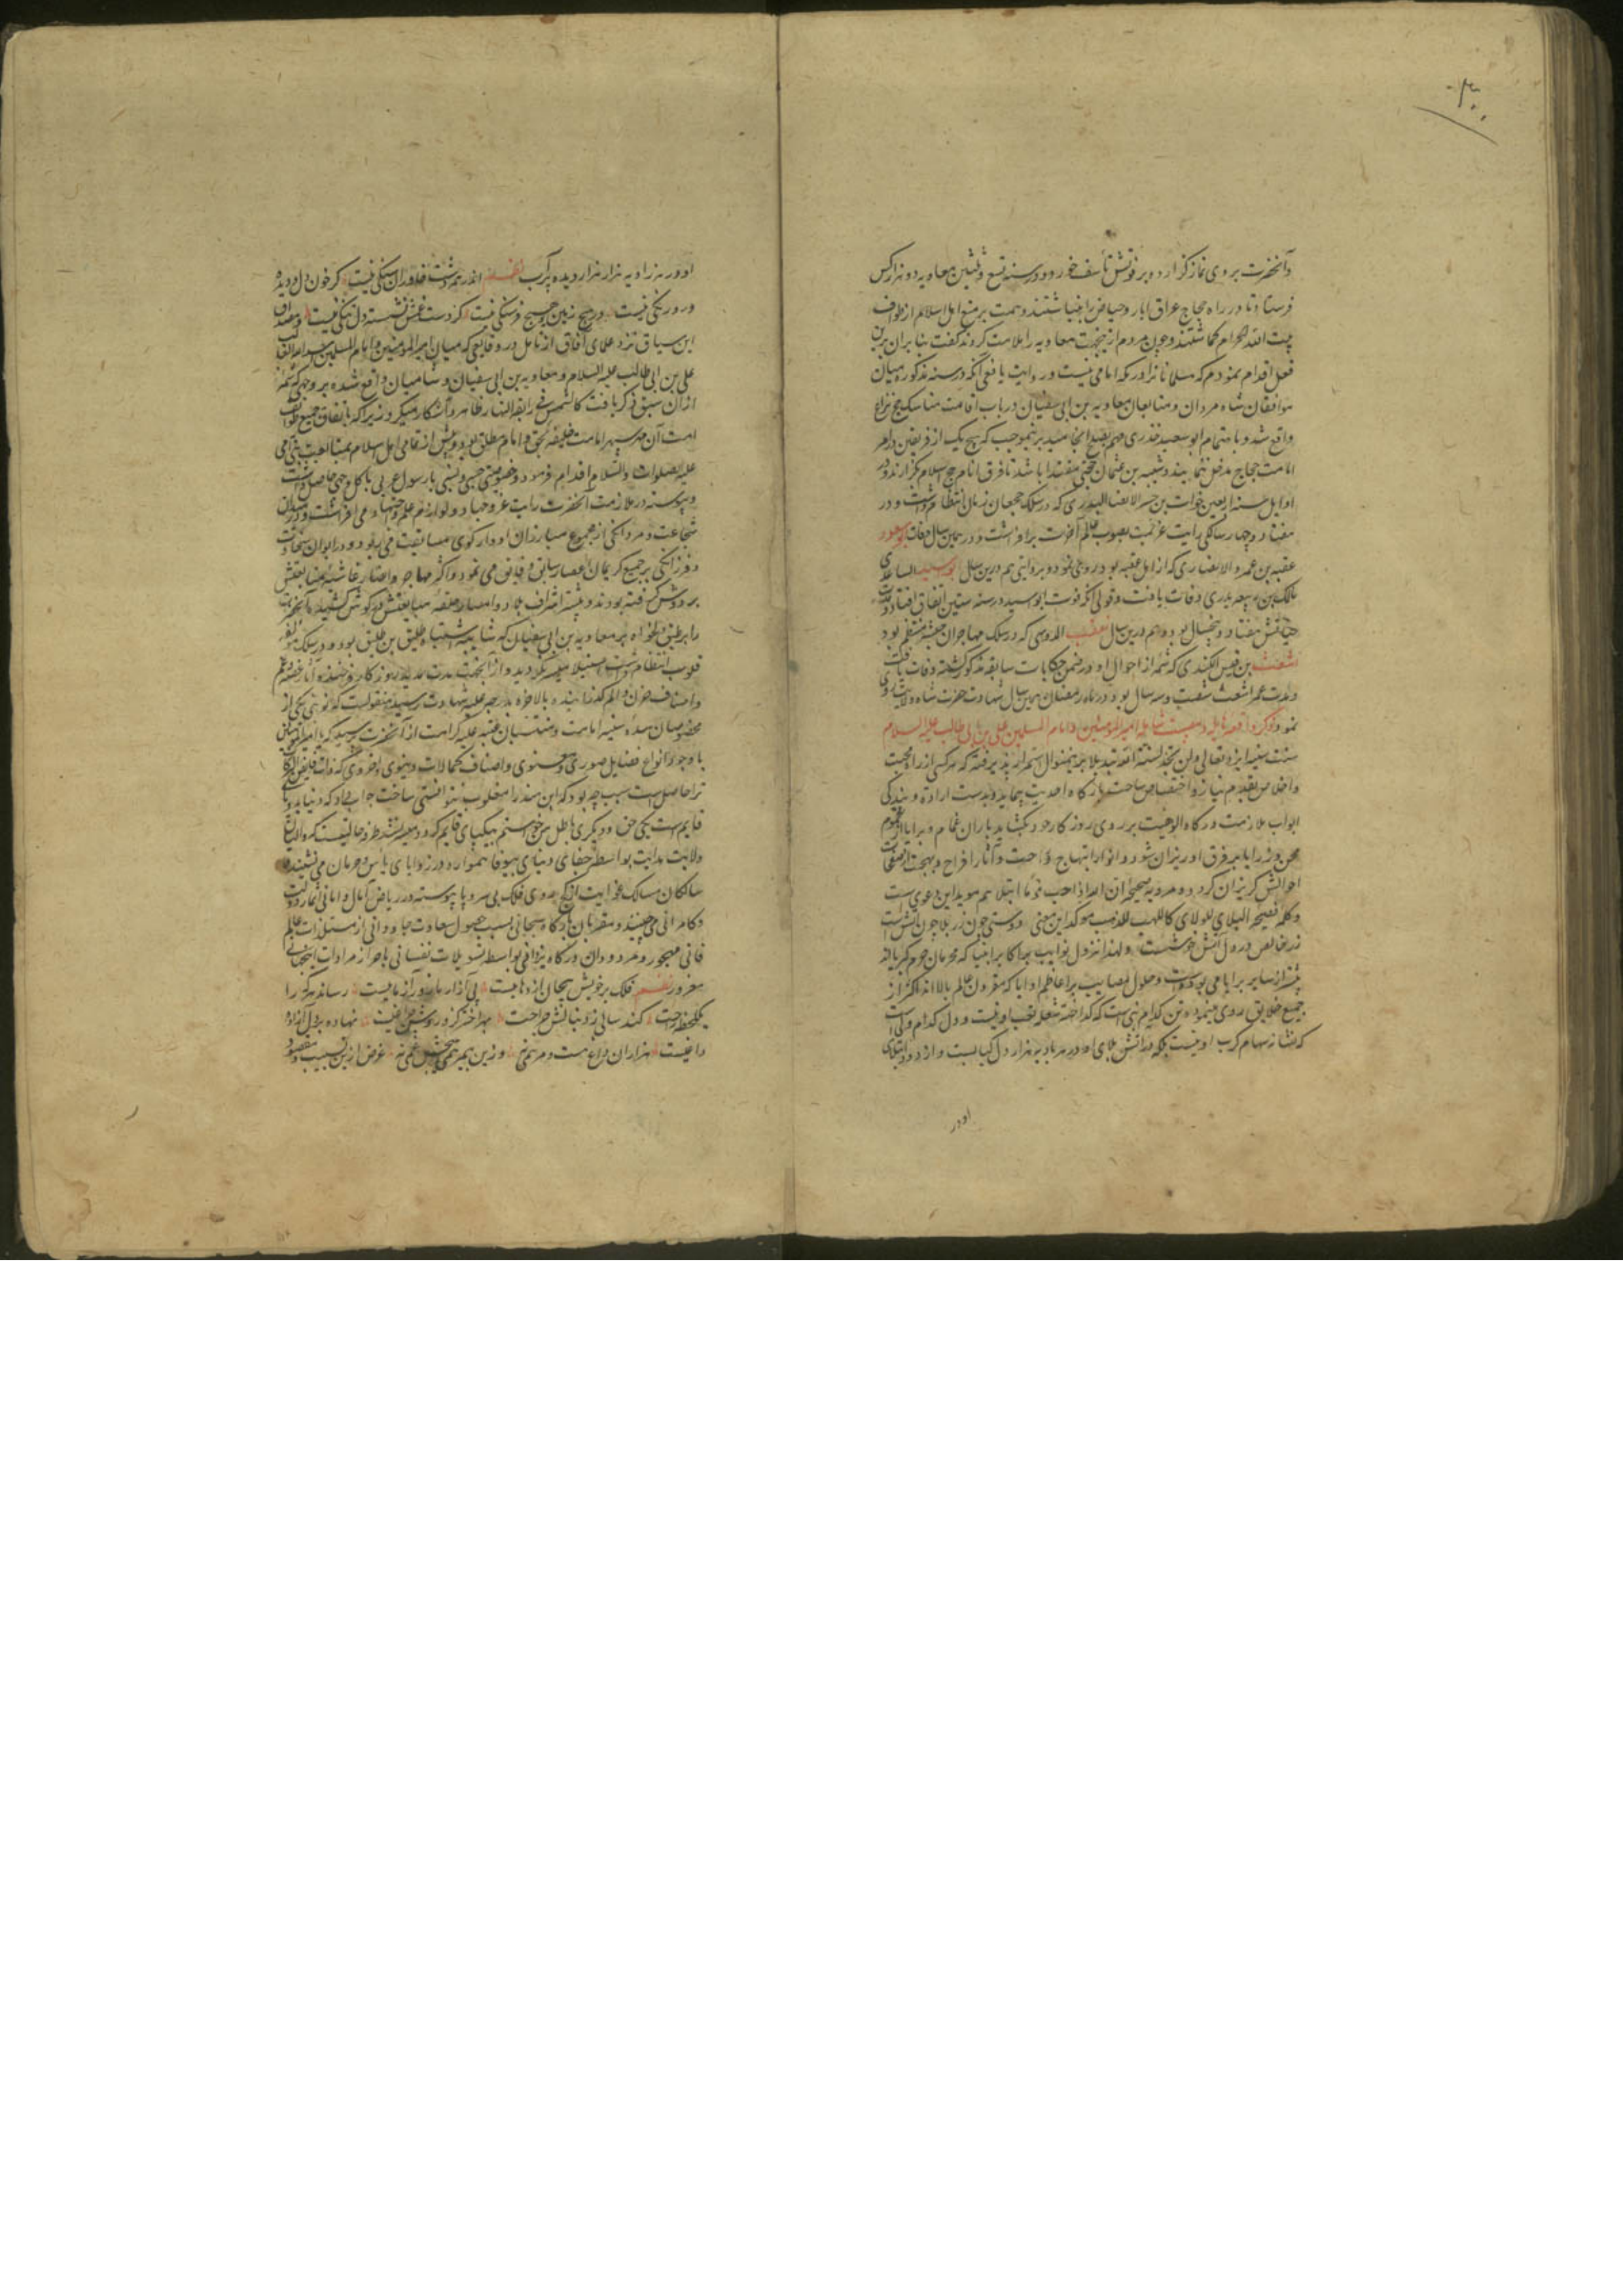 وآنحضرت بروی نماز گزارده بر فوتش تأسف خورد و در سنه تسع و ثلثین معاویه دو هزار کس
فرستاد تا در راه حجاج عراق آبار و حیاض را بینباشتند و همت بر منع اهل اسلام از طواف
بیت الله الحرام گماشتند و چون مردم ازین جهت معاویه را ملامت کردند گفت بنابران برین
فعل اقدام نمودم که مسلمانانرا در مکه امامی نیست و روایت یافعی آنکه در سنه مذکوره میان
موافقان شاه مردان و متابعان معاویه بن ابی سفیان در باب اقامت مناسک حج نزاع
واقع شد و باهتمام ابو سعید خدری مهم بصلح انجامید برینموجب که هیچ یک از فریقین در امر
امامت حجاج مدخل ننمایند و شیبه بن عثمان حجبی مقتدا باشد تا فرق انام حج اسلام بگزارند و در
اوایل سنه اربعین خوات بن جبیر الانصاری البدری که در سلک شجعان زمان انتظام داشت و در
هفتاد و چهار سالگی رایت عزیمت بصوب عالم آخرت برافراشت و در همین سال وفات ابو مسعود
عقبه بن عمرو الانصاری که از اهل عقبه بود روی نمود و بروایتی هم درین سال ابو اسید الساعدی
مالک بن ربیعه بدری وفات یافت و قولی آنکه فوت ابو اسید در سنه ستین اتفاق افتاد و مدت
حیاتش هفتاد و پنجسال بود و هم درین سال معیقیب الدوسی که در سلک مهاجران حبشه منتظم بود
اشعث بن قیس الکندی که شمه از احوال او در ضمن حکایات سابقه مذکور گشته وفات یافت
و مدت عمر اشعث شصت و سه سال بود و در ماه رمضان همین سال شهادت حضرت شاه ولایت روی
نمود ذکر واقعه هایله و مصیبت شامله امیر المومنین و امام المسلمین علی بن ابی طالب علیه السلام
سنت سنیه ایزد تعالی ولن تجد لسنة الله تبدیلا برینمنوال استمرار پذیرفته که هر کس از راه محبت
و اخلاص بقدم نیاز و اختصاص ساحت بارگاه احدیت پیماید و بدست ارادة و بندگی
ابواب ملازمت درگاه الوهیت بر روی روزگار خود بگشاید باران غمام و برایا از غموم
محن و رزایا بر فرق او ریزان شود و انوار ابتهاج و راحت و آثار افراح و بهجت از صفحات
احوالش گریزان گردد و مرویه صحیحه ان الله اذا احب قوما ابتلاهم موید این دعوی است
و کلمه فصیحه البلاء للولاء کاللهب للذهب موکد این معنی دوستی چون زر بلا چون آتش است
زر خالص در دل آتش خوشست و لهذا نزول نوایب بر اکابر انبیا که محرمان حرم کبریااند
بیشتر از سایر برایا می بوده است و حلول مصایب بر اعاظم اولیا که مقربان عالم بالااند اکثر از
جمیع خلایق روی مینموده تن کدام نبی است که گداخته شعله تعب او نیست و دل کدام ولی است
که نشانه سهام کرب او نیست بلکه در آتش بلای او در هر بادیه هزار دل کبابست و از درد ابتلای
او در
او در هر زاویه هزار هزار دیده پر آب نظم اندر همه دشت خاوران سنگی نیست کز خون دل و دیده
درو رنگی نیست در هیچ زمین و هیچ فرسنگی نیست کز دست غمش نشسته دل تنگی نیست و مصداق
این سیاق نزد علمای آفاق از تامل در وقایعی که میان امیر المومنین و امام المسلمین اسد الله الغالب
علی بن ابی طالب علیه السلام و معاویه بن ابی سفیان و شامیان واقع شده بر وجهی که شمه
ازان سبق ذکر یافت کالشمس فی رابعة النهار ظاهر و آشکار میگردد زیرا که باتفاق جمیع طوایف
امت آن مهر سپهر امامت خلیفه بحق و امام مطلق بود و پیش از تمامی اهل اسلام بمتابعت نبی امی
علیه الصلوات والسلام اقدام فرمود و خصوصیت حسبی و نسبی با رسول عربی باکمل وجهی حاصل داشت
و پیوسته در ملازمت آنحضرت رایت غزو جهاد و لوای علم و اجتهاد می افراشت و در میدان
شجاعت و مردانگی از مجموع مبارزان ادوار گوی مسابقت می ربود و در ایوان سخاوت
و فرزانگی بر جمیع کریمان اعصار سابق و فایق می نمود و اکثر مهاجر و انصار غاشیه متابعتش
بر دوش گرفته بودند و بیشتر اشراف بلاد و امصار حلقه مبایعتش در گوش کشیده آنحضرت
را بر طبق دلخواه بر معاویه بن ابی سفیان که بی شایبه اشتباه طلیق بن طلیق بود و در سلک مولفه
قلوب انتظام داشت استیلا میسر نگردید و از آنجهت مدت مدید روزگار فرخنده آثار بغصه و غم
و اصناف حزن و الم گذرانیده بالاخره بدرجه علیه شهادت رسید منقولست که نوبتی یکی از
مخصوصان سده سنیه امامت و منتسبان عتبه علیه کرامت از آنحضرت پرسید که یا امیر المومنین
با وجود انواع فضایل صوری و معنوی و اصناف کمالات دنیوی و اخروی که ذات فایض البرکات
ترا حاصل است سبب چه بود که ابن هند را مغلوب نتوانستی ساخت جواب داد که دنیا بدو پای
قایم است یکی حق و دیگری باطل من خواستم بیکپای قایم گردد میسر نشد طرفه حالتیست که والیان
ولایت هدایت بواسطه جفای دنیای بیوفا همواره در زوایای یاس و حرمان می نشینند و
سالکان مسالک غوایت از کجروی فلک بی سر و پا پیوسته در ریاض آمال و امانی اثمار دولت
و کامرانی می چینند و مقربان بارگاه سبحانی بسبب حصول سعادت جاودانی از مستلذات عالم
فانی مهجور و مردودان درگاه یزدانی بواسطه تسویلات نفسانی باحراز مرادات اینجهانی
مغرور نظم فلک بر خویش پیچان اژدهاییست پی آزار ما زورآزماییست رساند هرکرا
یکلحظه راحت کند سالی ز دنبالش جراحت بهر اختر کزو روشن چراغیست نهاده بر دل آزاده
داغیست هزاران داغ هست و مرهمی نه وزین بیمرهمی هیچش غمی نه غرض از این تسبیب و مقصود